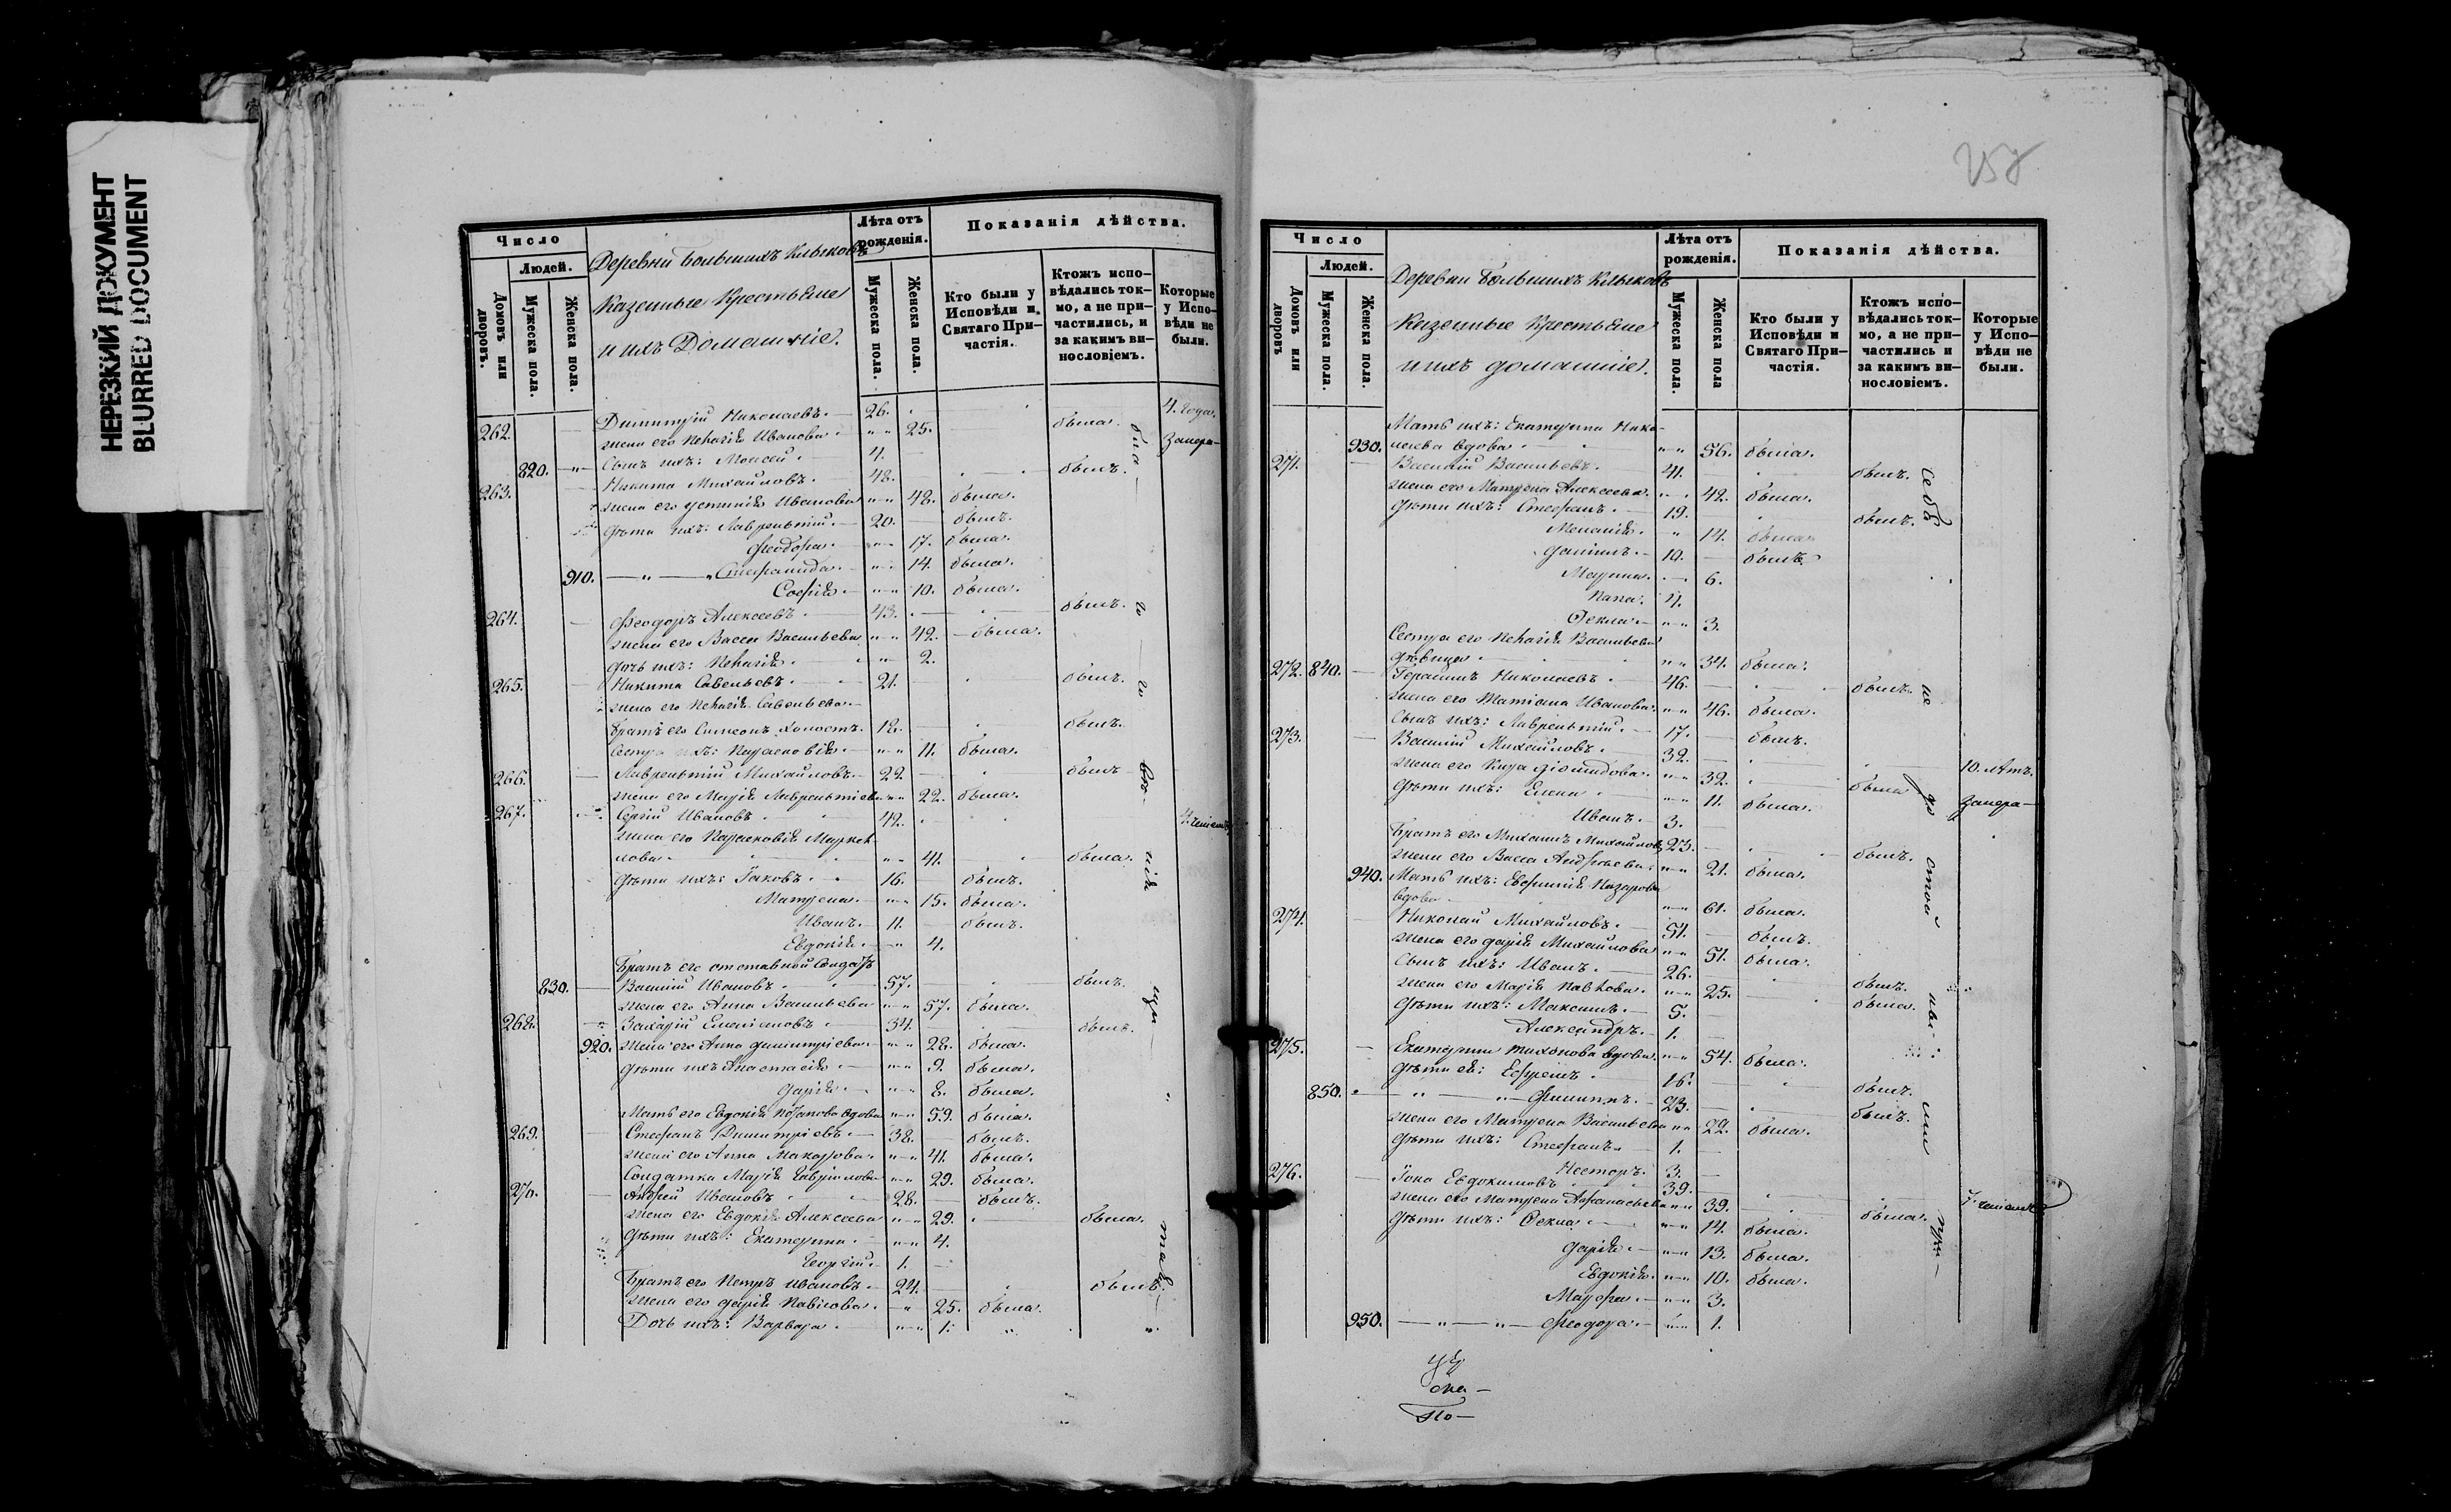 НЕРЕЗКИЙ ДОКУМЕНТ
BLURRED DOCUMENT
Число
Людей.
Домовъ или дворовъ.
Мужеска пола.
Женска пола.
Деревни Большихъ Клыковъ
Казенные Крестьяне
и ихъ Домашніе.
Лѣта отъ рожденія.
Мужеска пола.
Женска пола.
Показанія дѣйства.
Кто были у Исповѣди и Святаго При-
частія.
Ктожъ испо-
вѣдались ток-
мо, а не при-
частились, и
за какимъ ви-
нословіемъ.
Которые
у Испо-
вѣди не
были.
262. Димитрій Николаевъ. 26. 4. года.
жена его Пелагія Иванова 25. была. запера-
820. Сынъ ихъ: Моисей 4.
263. Никита Михайловъ. 48. былъ.
жена его Устинія Иванова 48. была.
дѣти ихъ: Лаврентій. 20. былъ.
Феодора. 17. была.
910. Стефанида. 14. была.
Софія 10. была.
264. Феодоръ Алексеевъ. 43. былъ.
жена его Васса Васильева 42. была.
дочь ихъ: Пелагія. 2.
265. Никита Савельевъ. 21. былъ.
жена его Пелагія Савельева
братъ его Симеонъ холостъ. 18. былъ.
Сестра ихъ: Парасковія 11. была.
266. Лаврентій Михайловъ. 22. былъ
жена его Марія Лаврентіева 22. была.
267. Сергій Ивановъ 42.
жена его Парасковія Маркел-
лова 41. была.
дѣти ихъ: Іаковъ. 16. былъ.
Матрена. 15. была.
Иванъ. 11. былъ.
Евдокія. 4.
Братъ его отставной Солдатъ
830. Василій Ивановъ 57. былъ.
жена его Анна Васильева 57. была.
268. Захарій Емеліановъ 34. былъ.
920. жена его Анна Димитріева 28. была.
дѣти ихъ Анастасія 9. была.
Дарія 8. была.
Мать его Евдокія Потапова вдова 59. была.
269. Стефанъ Димитріевъ 38. былъ.
жена его Анна Макарова 41. была.
Солдатка Марія Гавріилова 29. была.
270. Андрей Ивановъ 28. былъ.
жена его Евдокія Алексеева 29. была.
дѣти ихъ: Екатерина 4.
Георгій 1.
Братъ его Петръ Ивановъ. 24. былъ.
жена его Дарія Павлова. 25. была.
Дочь ихъ: Варвара. 1.
Число
Людей.
Домовъ или дворовъ
Мужеска пола.
Женска пола.
Деревни Большихъ Клыковъ
Казенные Крестьяне
и ихъ домашніе.
Лѣта отъ рожденія.
Мужеска пола.
Женска пола
Показанія дѣйства.
Кто были у
Исповѣди и
Святаго При-
частія.
Ктожъ испо-
вѣдались ток-
мо, а не при-
частились и
за какимъ ви-
нословіемъ.
Которые
у Испо-
вѣди не
были.
Мать ихъ: Екатерина Нико-
930. лаева вдова 56. была.
271. Василій Васильевъ. 41. былъ.
жена его Матрена Алексеева. 42. была.
дѣти ихъ: Стефанъ. 19. былъ.
Меланія. 14. была
Даніилъ. 10. былъ
Марина. 6.
4.
Фекла 3.
Сестра его Пелагія Васильева
дѣвица 34. была.
272. 840. Герасимъ Николаевъ 46. былъ.
жена его Татіана Иванова. 46. была.
Сынъ ихъ: Лаврентій. 17. былъ.
273. Василій Михайловъ. 32. 10. лѣтъ.
жена его Кира Діомидова. 32. была запера-
дѣти ихъ: Елена 11. была.
Иванъ. 3.
Братъ его Михаилъ Михайловъ 23. былъ.
жена его Васса Андреева 21. была.
940. Мать ихъ: Евфимія Назарова
вдова 61. была.
274. Николай Михайловъ. 51. былъ.
жена его Дарія Михайлова 51. была.
Сынъ ихъ: Иванъ. 26. былъ.
жена его Марія Павлова. 25. была.
дѣти ихъ: Максимъ. 5.
Александръ. 1.
275. Екатерина Тихонова вдова. 54. была.
дѣти ея: Ефремъ 16. былъ.
850. Филиппъ. 23. былъ.
жена его Матрена Васильева 22. была.
дѣти ихъ: Стефанъ 1.
Несторъ. 3.
276. Іона Евдокимовъ 39.
жена его Матрена Афанасьева 39. была.
дѣти ихъ: Фекла 14. была.
Дарія 13. была.
Евдокія. 10. была.
Марфа 3.
950. Феодора 1.